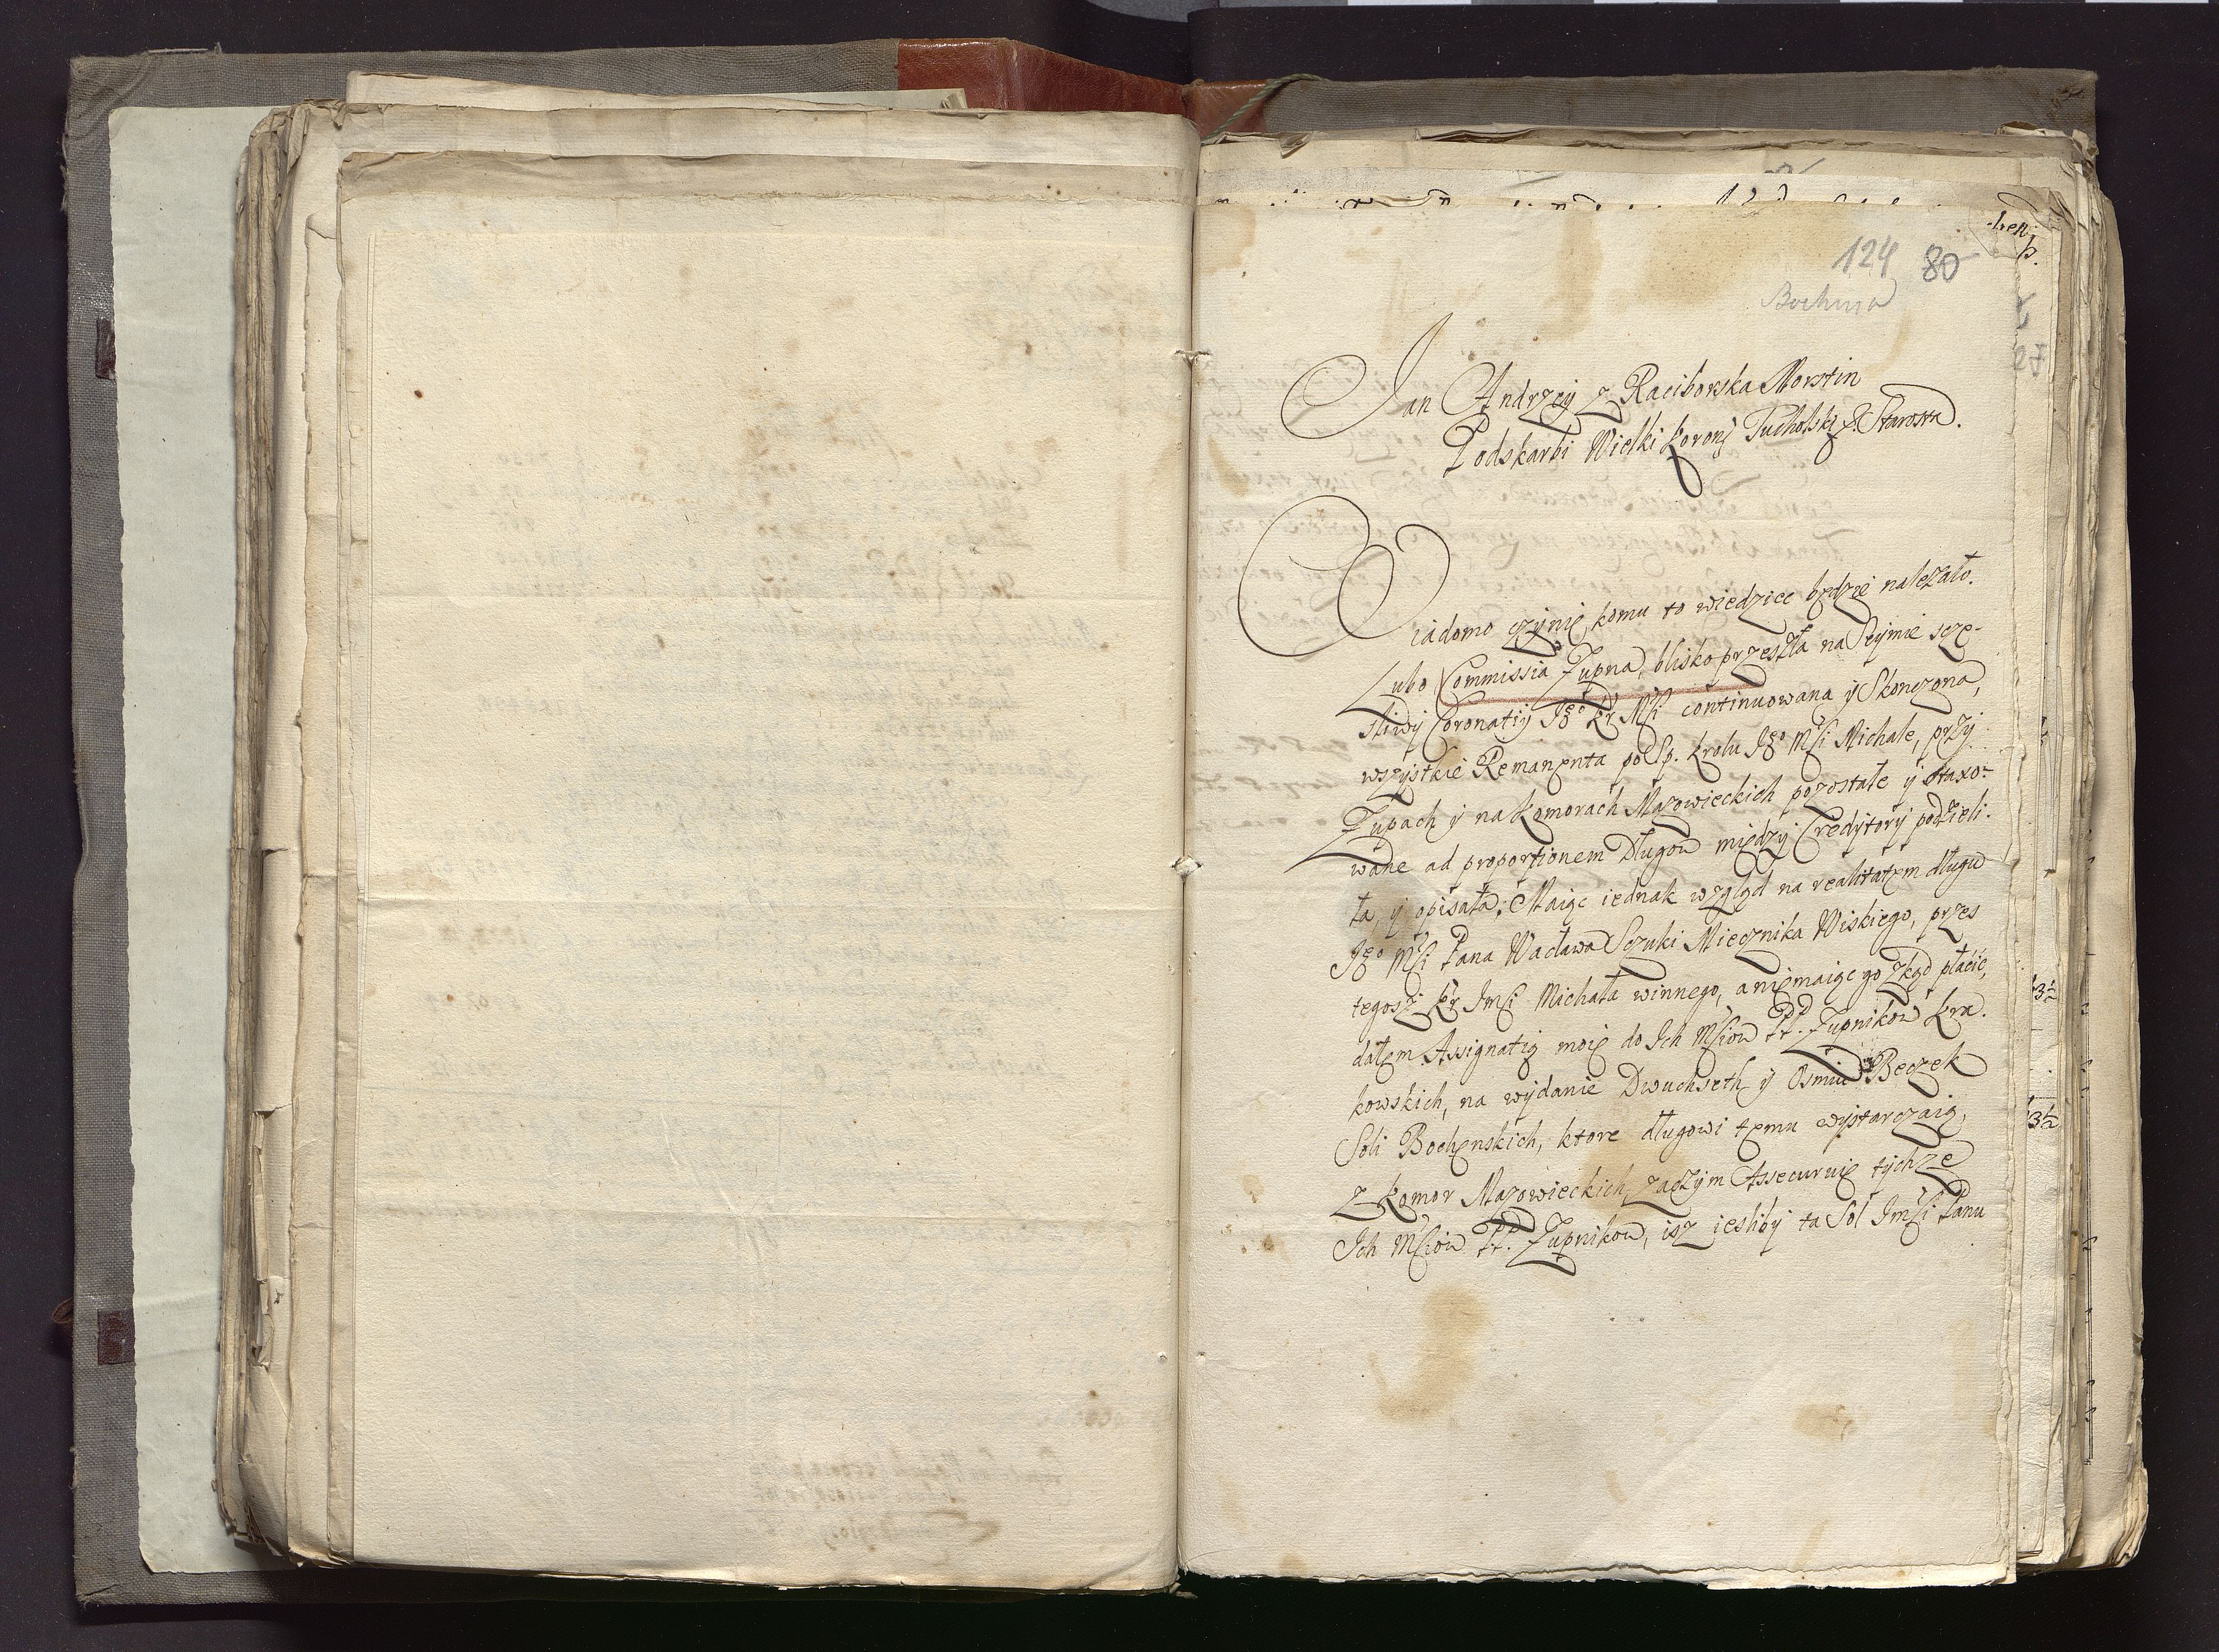 124 80
Bochnia
Jan Andrzey z Raciborska Morstin
Podskarbi Wielki Koronÿ Tucholskÿ &. Starosta.
Wiadomo czÿnię komu to wiedziec będzie należało.
Lubo Commissia Zupna, blisko przeszła na Seÿmie scze-
sliwÿ Coronatiÿ Jgo Kr Msci continuowana ÿ Skonczona,
wszÿstkie Remanęnta po Sp. Krolu Jgo Msci Michale, przÿ
Zupach ÿ na Komorach Mazowieckich pozostałe ÿ otaxo-
wane ad proportionem Długow międzÿ Creditorÿ podzieli-
ła, ÿ opisała; Maiąc iednak wzgląd na realitatem długu
Jgo Msci Pana Wacława Sczuki Miecznika Wiskiego, przes
tegosz Kr Jmsci Michała winnego, a niemaiąc go zkąd płacic,
dałem Assignatią moię do Ich Msciow PP. Zupnikow Kra-
kowskich, na wÿdanie Dwuchseth ÿ Osmiu Beczek
Soli Bochenskich, ktore długowi temu wÿstarczaią,
z Komor Mazowieckich, zaczÿm Assecuruię tÿchze
Ich Msciow PP. Zupnikow, isz iesliby ta Sol Jmsci Panu